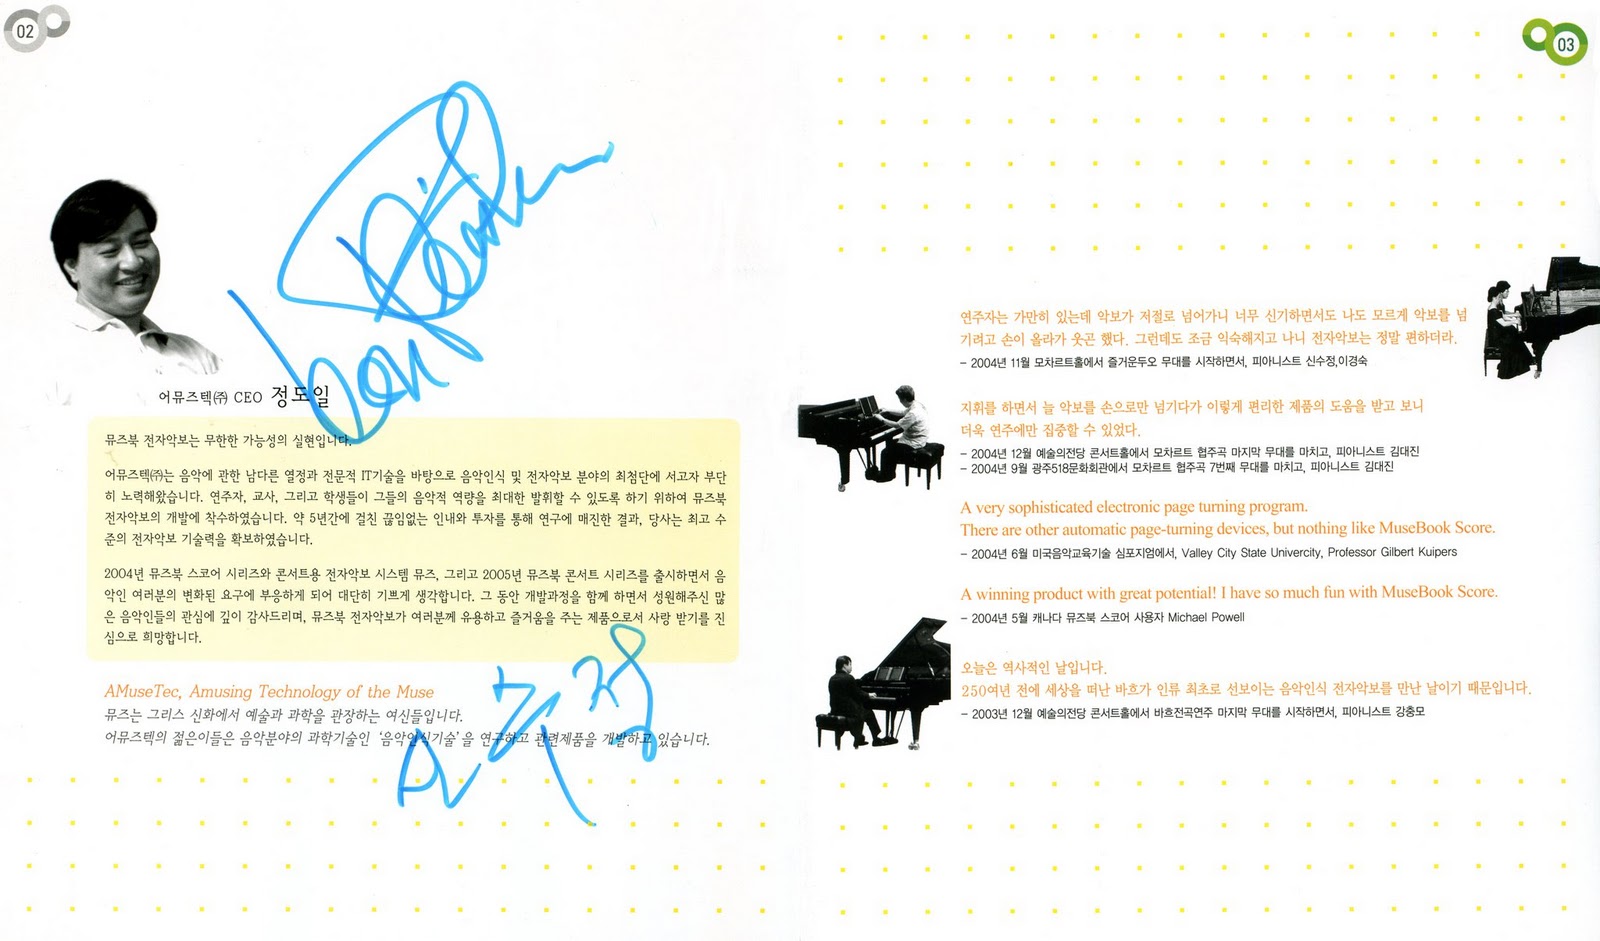 02
어뮤즈텍㈜ CEO 정도일
뮤즈북 전자악보는 무한한 가능성의 실현입니다.
어뮤즈텍㈜는 음악에 관한 남다른 열정과 전문적 IT기술을 바탕으로 음악인식 및 전자악보 분야의 최첨단에 서고자 부단
히 노력해왔습니다. 연주자, 교사, 그리고 학생들이 그들의 음악적 역량을 최대한 발휘할 수 있도록 하기 위하여 뮤즈북
전자악보의 개발에 착수하였습니다. 약 5년간에 걸친 끊임없는 인내와 투자를 통해 연구에 매진한 결과, 당사는 최고 수
준의 전자악보 기술력을 확보하였습니다.
2004년 뮤즈북 스코어 시리즈와 콘서트용 전자악보 시스템 뮤즈, 그리고 2005년 뮤즈북 콘서트 시리즈를 출시하면서 음
악인 여러분의 변화된 요구에 부응하게 되어 대단히 기쁘게 생각합니다. 그 동안 개발과정을 함께 하면서 성원해주신 많
은 음악인들의 관심에 깊이 감사드리며, 뮤즈북 전자악보가 여러분께 유용하고 즐거움을 주는 제품으로서 사랑 받기를 진
심으로 희망합니다.
AMuseTec, Amusing Technology of the Muse
뮤즈는 그리스 신화에서 예술과 과학을 관장하는 여신들입니다.
어뮤즈텍의 젊은이들은 음악분야의 과학기술인 '음악인식기술'을 연구하고 관련제품을 개발하고 있습니다.
03
연주자는 가만히 있는데 악보가 저절로 넘어가니 너무 신기하면서도 나도 모르게 악보를 넘
기려고 손이 올라가 웃곤 했다. 그런데도 조금 익숙해지고 나니 전자악보는 정말 편하더라.
- 2004년 11월 모차르트홀에서 즐거운두오 무대를 시작하면서, 피아니스트 신수정,이경숙
지휘를 하면서 늘 악보를 손으로만 넘기다가 이렇게 편리한 제품의 도움을 받고 보니
더욱 연주에만 집중할 수 있었다.
- 2004년 12월 예술의전당 콘서트홀에서 모차르트 협주곡 마지막 무대를 마치고, 피아니스트 김대진
- 2004년 9월 광주518문화회관에서 모차르트 협주곡 7번째 무대를 마치고, 피아니스트 김대진
A very sophisticated electronic page turning program.
There are other automatic page-turning devices, but nothing like MuseBook Score.
- 2004년 6월 미국음악교육기술 심포지엄에서, Valley City State Univercity, Professor Gilbert Kuipers
A winning product with great potential! I have so much fun with MuseBook Score.
- 2004년 5월 캐나다 뮤즈북 스코어 사용자 Michael Powell
오늘은 역사적인 날입니다.
250여년 전에 세상을 떠난 바흐가 인류 최초로 선보이는 음악인식 전자악보를 만난 날이기 때문입니다.
- 2003년 12월 예술의전당 콘서트홀에서 바흐전곡연주 마지막 무대를 시작하면서, 피아니스트 강충모